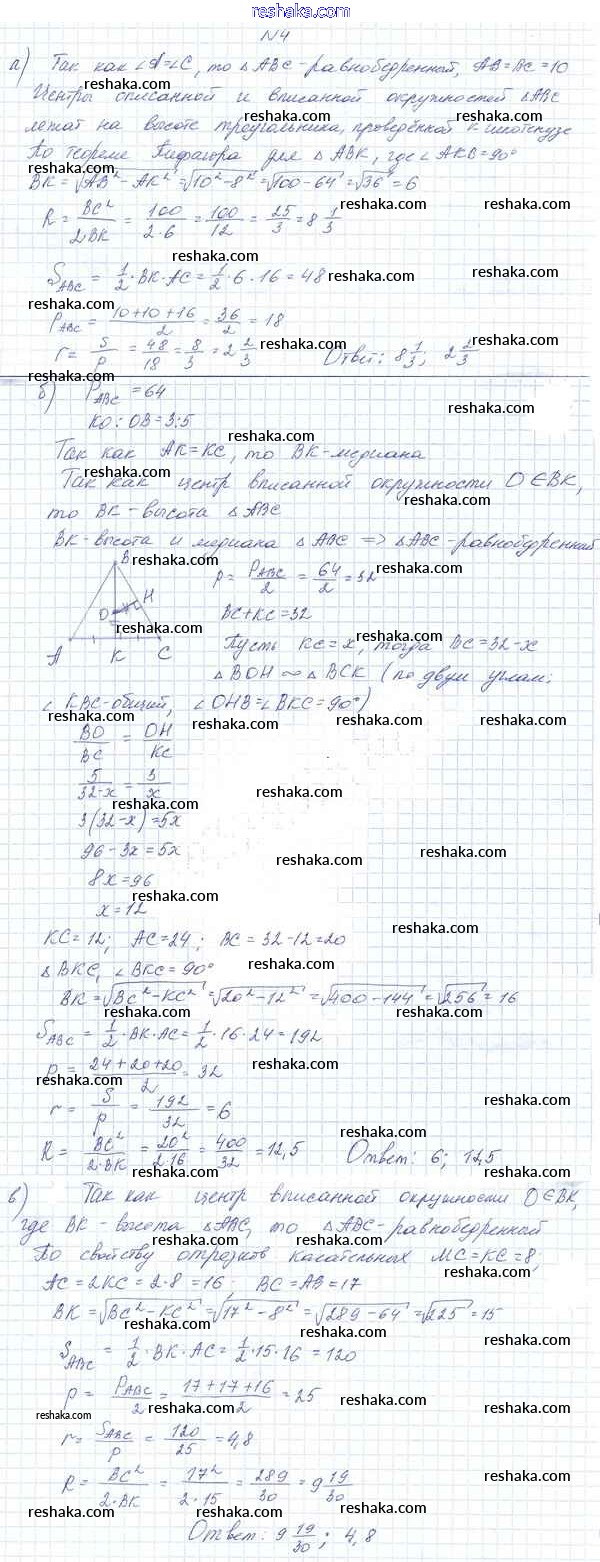 reshaka.com
№4
а) Так как ∠A=∠C, то △ABC-равнобедренный, AB=BC=10
Центры описанной и вписанной окружностей △ABC
лежат на высоте треугольника, проведённой к гипотенузе
По теореме Пифагора для △ABK, где ∠AKB=90°
BK=√AB²-AK²=√10²-8²=√100-64=√36=6
R=BC²/2BK=100/2·6=100/12=25/3=8 1/3
S_ABC=1/2·BK·AC=1/2·6·16=48
P_ABC=10+10+16/2=36/2=18
r=S/p=48/18=8/3=2 2/3 Ответ: 8 1/3; 2 2/3
б) P_ABC=64
KO:OB=3:5
Так как AK=KC, то BK-медиана
Так как центр вписанной окружности O∈BK,
то BK-высота △ABC
BK-высота и медиана △ABC => △ABC-равнобедренный
B
O
H
A
K
C
p=P_ABC/2=64/2=32
BC+KC=32
Пусть KC=x, тогда BC=32-x
△BOH∼△BCK (по двум углам:
∠KBC-общий, ∠OHB=∠BKC=90°)
BO/BC=OH/KC
5/32-x=3/x
3(32-x)=5x
96-3x=5x
8x=96
x=12
KC=12; AC=24; BC=32-12=20
△BKC, ∠BKC=90°
BK=√BC²-KC²=√20²-12²=√400-144=√256=16
S_ABC=1/2·BK·AC=1/2·16·24=192
p=24+20+20/2=32
r=S/p=192/32=6
R=BC²/2·BK=20²/2·16=400/32=12,5 Ответ: 6; 12,5
в) Так как центр вписанной окружности O∈BK,
где BK-высота △ABC, то △ABC-равнобедренный
По свойству отрезков касательных MC=KC=8;
AC=2KC=2·8=16; BC=AB=17
BK=√BC²-KC²=√17²-8²=√289-64=√225=15
S_ABC=1/2·BK·AC=1/2·15·16=120
p=P_ABC/2=17+17+16/2=25
r=S_ABC/p=120/25=4,8
R=BC²/2·BK=17²/2·15=289/30=9 19/30
Ответ: 9 19/30; 4,8